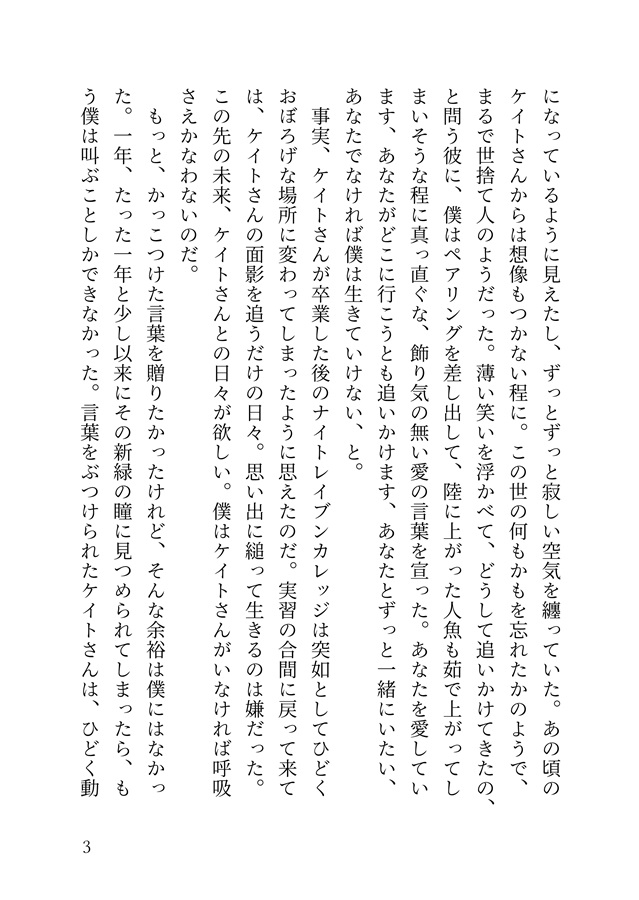 になっているように見えたし、ずっとずっと寂しい空気を纏っていた。あの頃の
ケイトさんからは想像もつかない程に。この世の何もかもを忘れたかのようで、
まるで世捨て人のようだった。薄い笑いを浮かべて、どうして追いかけてきたの、
と問う彼に、僕はペアリングを差し出して、陸に上がった人魚も茹で上がってし
まいそうな程に真っ直ぐな、飾り気の無い愛の言葉を宣った。あなたを愛してい
ます、あなたがどこに行こうとも追いかけます、あなたとずっと一緒にいたい、
あなたでなければ僕は生きていけない、と。
事実、ケイトさんが卒業した後のナイトレイブンカレッジは突如としてひどく
おぼろげな場所に変わってしまったように思えたのだ。実習の合間に戻って来て
は、ケイトさんの面影を追うだけの日々。思い出に縋って生きるのは嫌だった。
この先の未来、ケイトさんとの日々が欲しい。僕はケイトさんがいなければ呼吸
さえかなわないのだ。
もっと、かっこつけた言葉を贈りたかったけれど、そんな余裕は僕にはなかっ
た。一年、たった一年と少し以来にその新緑の瞳に見つめられてしまったら、も
う僕は叫ぶことしかできなかった。言葉をぶつけられたケイトさんは、ひどく動
3